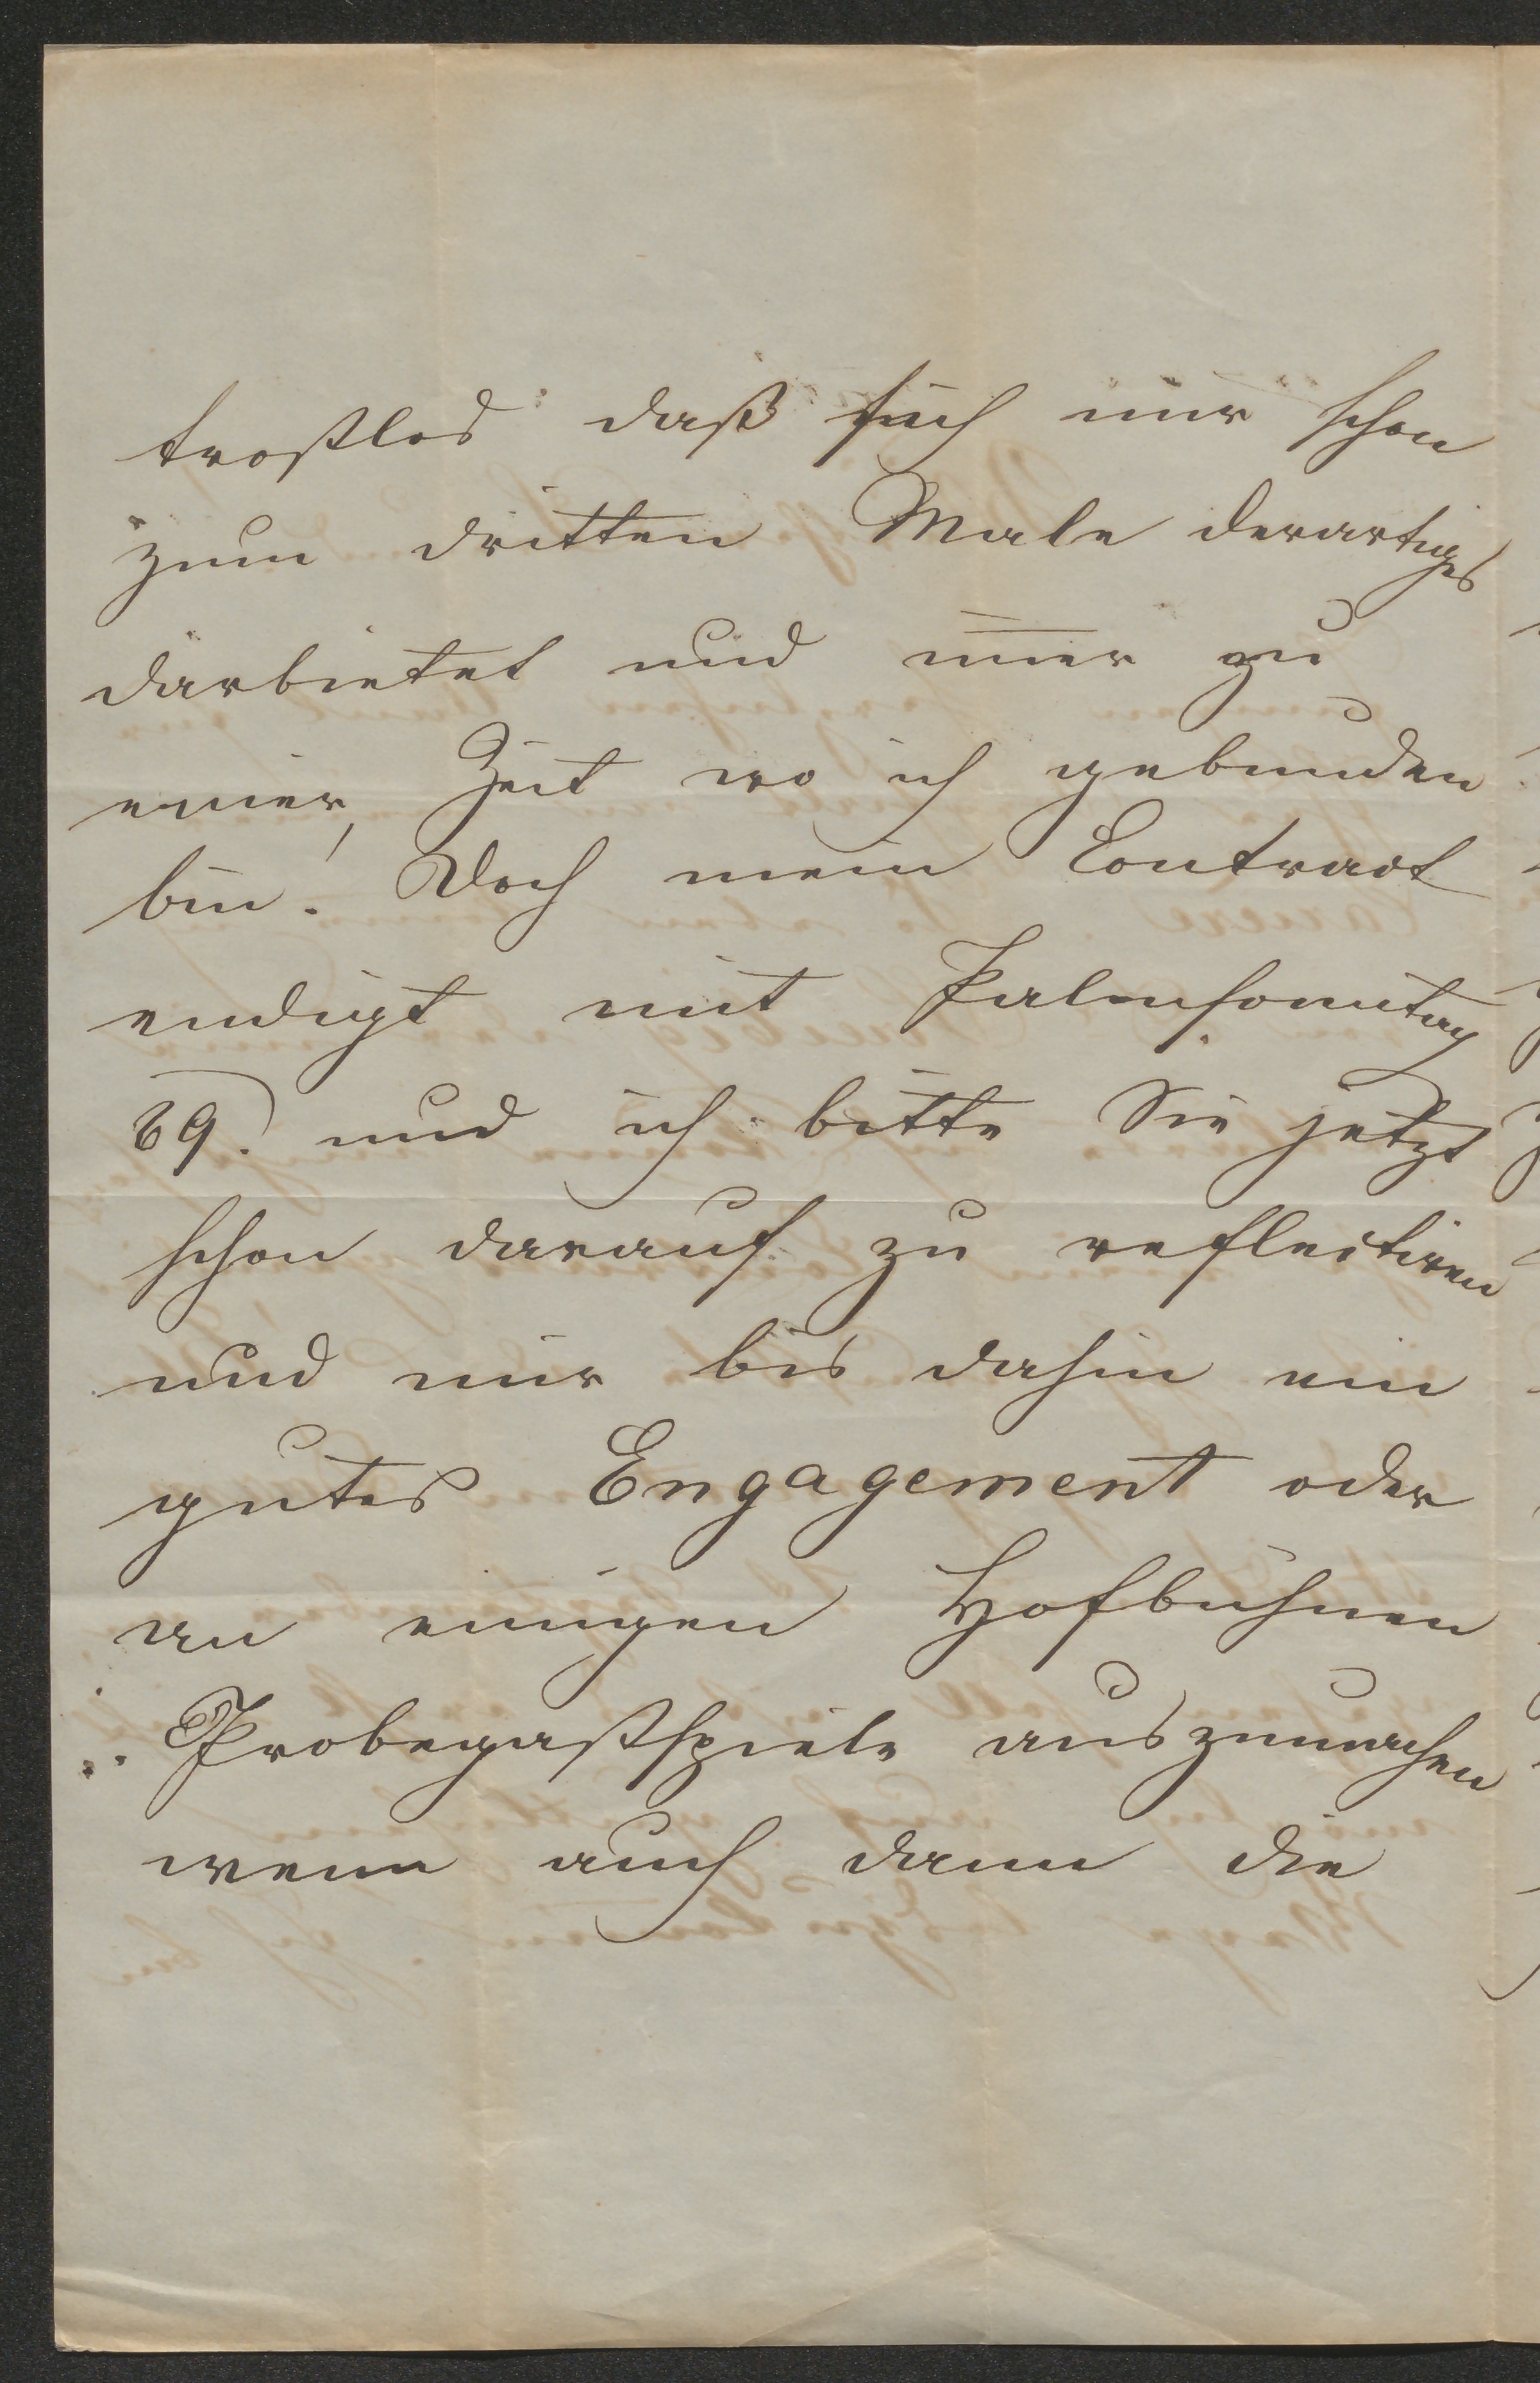 trostlos daß sich mir schon
zum dritten Male derartiges
darbietet und im̅er zu
einer, Zeit wo ich gebunden
bin! Doch mein Contract
endigt mit Palmsonntag
69. und ich bitte Sie jetzt
schon darauf zu reflectiren
und mir bis dahin ein
gutes Engagement oder
an einigen Hofbühnen
Probegastspiele auszumachen
wenn auch dann die